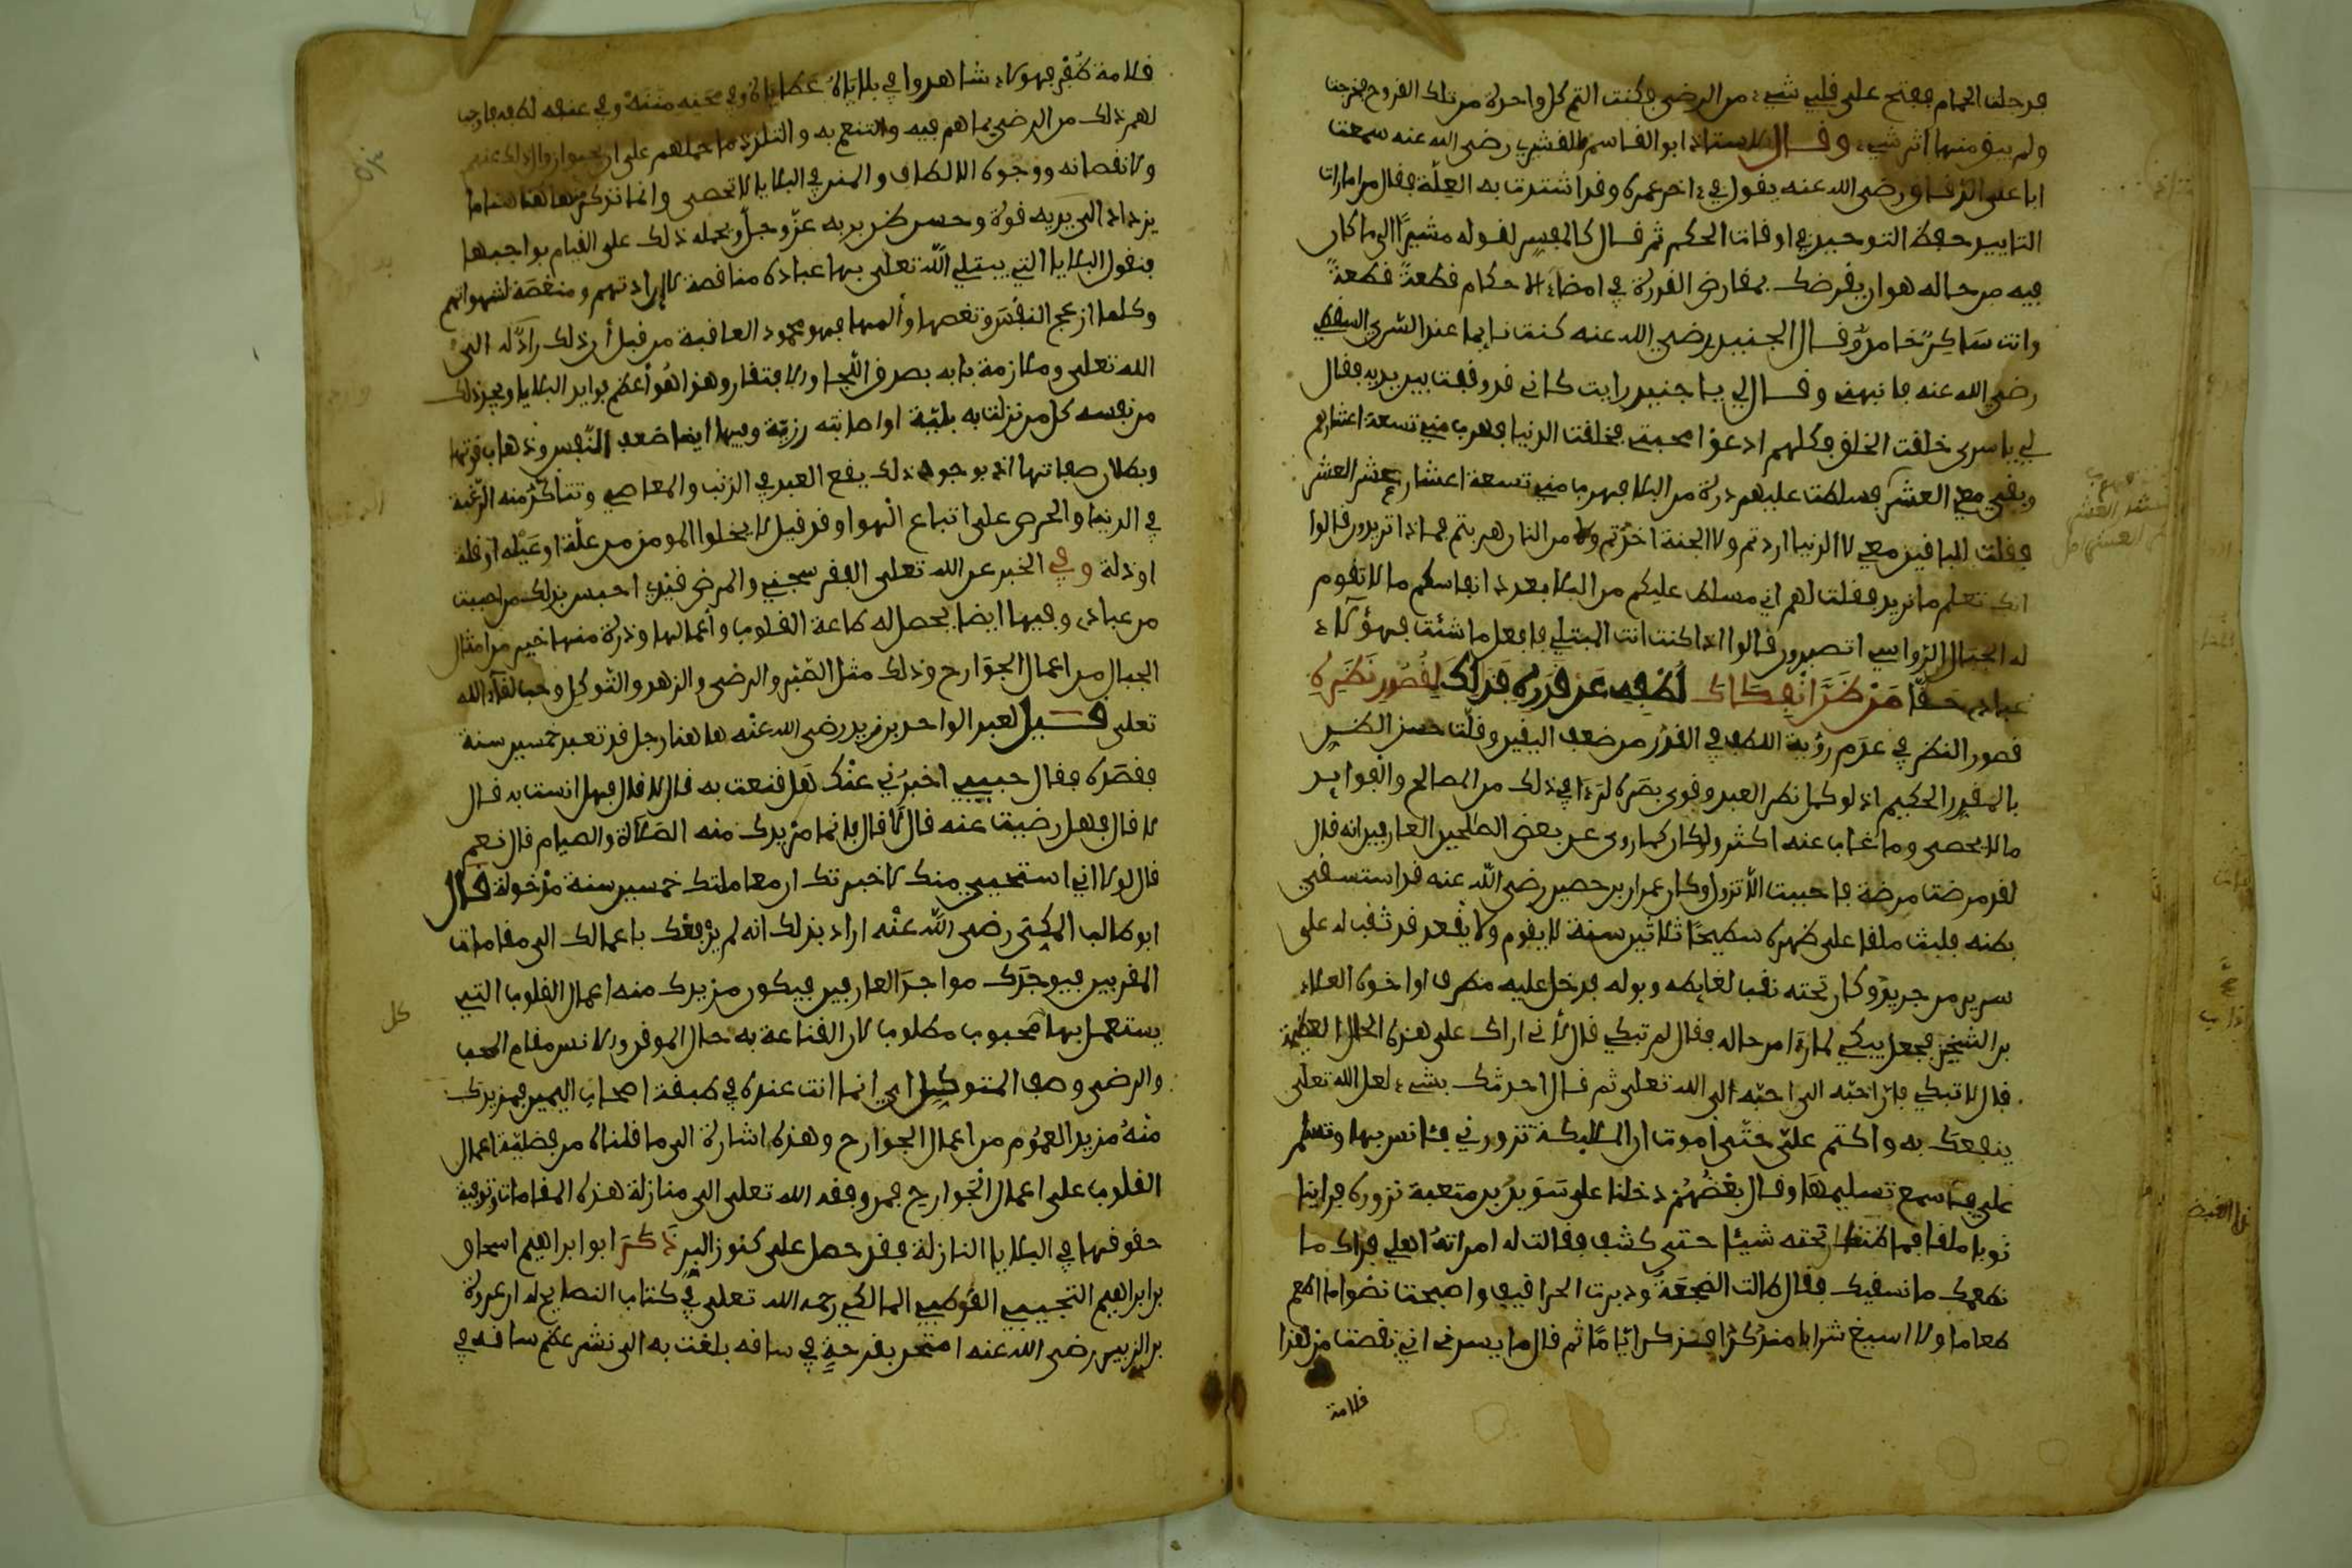 فدخلت الحمام ففتح على قلبي شيء من الرضى فكنت التم كل واحدة من تلك القروح فخرجت
ولم يبق منها اثر شيء وقال الاستاذ ابو القاسم القشيري رضي الله عنه سمعت
ابا علي الدقاق رضي الله عنه يقول في اخر عمره وقد اشتدت به العلة فقال من امارات
التاييد حفظ التوحيد في اوقات الحكم ثم قال كالمفسر لقوله مشيرا الى ما كان
فيه من حاله هو ان يقرضك بمقارض القدرة في امضاء الاحكام قطعة قطعة
وانت ساكن خامد وقال الجنيد رضي الله عنه كنت نايما عند السري السقطي
رضي الله عنه فانبهني وقال لي يا جنيد رايت كاني قد وقفت بين يديه فقال
لي يا سري خلقت الخلق فكلهم ادعوا محبتي فخلقت الدنيا فهرب مني تسعة اعشارهم
وبقي معي العشر فسلطت عليهم ذرة من البلا فهربا مني تسعة اعشار عشر العشر
فقلت للباقين معي لا الدنيا اردتم ولا الجنة اخذتم ولا من النار هربتم فماذا تريدون قالوا
انك تعلم ما نريد فقلت لهم اني مسلط عليكم من البلا بعدد انفاسكم ما لا تقوم
له الجبال الرواسي اتصبرون قالوا اذا كنت انت المبتلي فافعل ما شئت فهؤلاء
عبادي حقا من ظن انفكاك لطفه عن قدره فذلك لقصور نظره
قصور النظر في عدم رؤية اللطف في القدر من ضعف اليقين وقلت حسن الظن
بالمقدر الحكيم اذ لو كمل نظر العبد وقوي بصره لرءا في ذلك من المصالح والفوايد
ما لا يحصى وما غاب عنه اكثر ولكان كما روي عن بعض الصالحين العارفين انه قال
لقد مرضت مرضة فاحببت الا تزول وكان عمران بن حصين رضي الله عنه قد استسقي
بطنه فلبث ملقا على ظهره سطيحا ثلاثين سنة لا يقوم ولا يقعد قد ثقب له على
سرير من جريد وكان تحته نقب لغايطه وبوله فدخل عليه مطرف او اخوه العلاء
بن الشخير فجعل يبكي لما رءا من حاله فقال لم تبكي قال لاني اراك على هذه الحال العظيمة
قال لا تبكي فان احبه الي احبه الى الله تعلى ثم قال احدثك بشيء لعل الله تعلى
ينفعك به واكتم علي حتى اموت ان الملايكة تزورني فئانس بها وتسلم
علي فاسمع تسليمها وقال بعضهم دخلنا على سويد بن متعبة نزوره فراينا
ثوبا ملقا فما ظننا ان تحته شيئا حتى كشف فقالت له امراته اهلي فداك ما
نطعمك ما نسقيك فقال طالت الضجعة ودبرت الحراقيف واصبحت نضوا ما اطعم
طعاما ولا اسيغ شرابا منذ كذا فذكر اياما ثم قال ما يسرني اني نقصت من هذا
قلامة
قلامة ظفر فهولاء شاهدوا في بلاياه عطاياه وفي محنه مننه وفي عنفه لطفه فاوجب
لهم ذلك من الرضى بما هم فيه والتنعم به والتلذذ ما حملهم على ان يحبوا زوال ذلك عنهم
ولا نقصانه ووجوه الالطاف والمنن في البلايا لا تحصى وانما نذكر منها هنا ما
يزداد الى يديه قوة وحسن ظن بربه عز وجل ويحمله ذلك على القيام بواجبها
فنقول البلايا التي يبتلي الله تعلى بها عباده مناقصة لارادتهم ومنغصة لشهواتهم
وكلما ازعج النفس ونغصها وألمها فهو محمود العاقبة من قبل أن ذلك راد له الى
الله تعلى وملازمة بابه بصدق اللجا والافتقار وهذا هو أعظم فوايد البلايا ويجد ذلك
من نفسه كل من نزلت به بلية او اصابته رزية وفيها ايضا ضعف النفس وذهاب قوتها
وبطلان صفاتها اذ بوجود ذلك يقع العبد في الذنب والمعاصي وتتأكد منه الرغبة
في الدنيا والحرص على اتباع الهوا وقد قيل لا يخلوا المومن من علة او عيلة او قلة
او ذلة وفي الخبر عن الله تعلى الفقر سجني والمرض قيدي احبس بذلك من احببت
من عبادي وفيها ايضا يحصل له طاعة القلوب وأعمالها وذرة منها خير من امثال
الجبال من اعمال الجوارح وذلك مثل الصبر والرضى والزهد والتوكل وحب لقاء الله
تعلى قيل لعبد الواحد بن زيد رضي الله عنه هاهنا رجل قد تعبد خمسين سنة
فقصده فقال حبيبي اخبرني عنك هل قنعت به قال لا قال فهل انست به قال
لا قال فهل رضيت عنه قال لا قال فانما مزيدك منه الصلاة والصيام قال نعم
قال لولا اني استحيي منك لاخبرتك ان معاملتك خمسين سنة مدخولة قال
ابو طالب المكي رضي الله عنه اراد بذلك انه لم يرفعك باعمالك الى مقامات
المقربين فيوجدك مواجد العارفين فيكون مزيدك منه اعمال القلوب التي
يستعمل بها محبوب مطلوب لان القناعة به حال الموقن والانس مقام المحب
والرضى وصف المتوكل اي انما انت عنده في طبقة اصحاب اليمين فمزيدك
منه مزيد العموم من اعمال الجوارح وهذه اشارة الى ما قلناه من فضلية اعمال
القلوب على اعمال الجوارح فمن وفقه الله تعلى الى منازلة هذه المقامات وتوفية
حقوقها في البلايا النازلة فقد حصل على كنوز البر ذكر ابو ابراهيم اسحاق
بن ابراهيم التجيبي القوطبي المالكي رحمه الله تعلى في كتاب النصايح له ان عروة
بن الزبير رضي الله عنه امتحن بقرحة في ساقه بلغت به الى نشر عظم ساقه في
كل